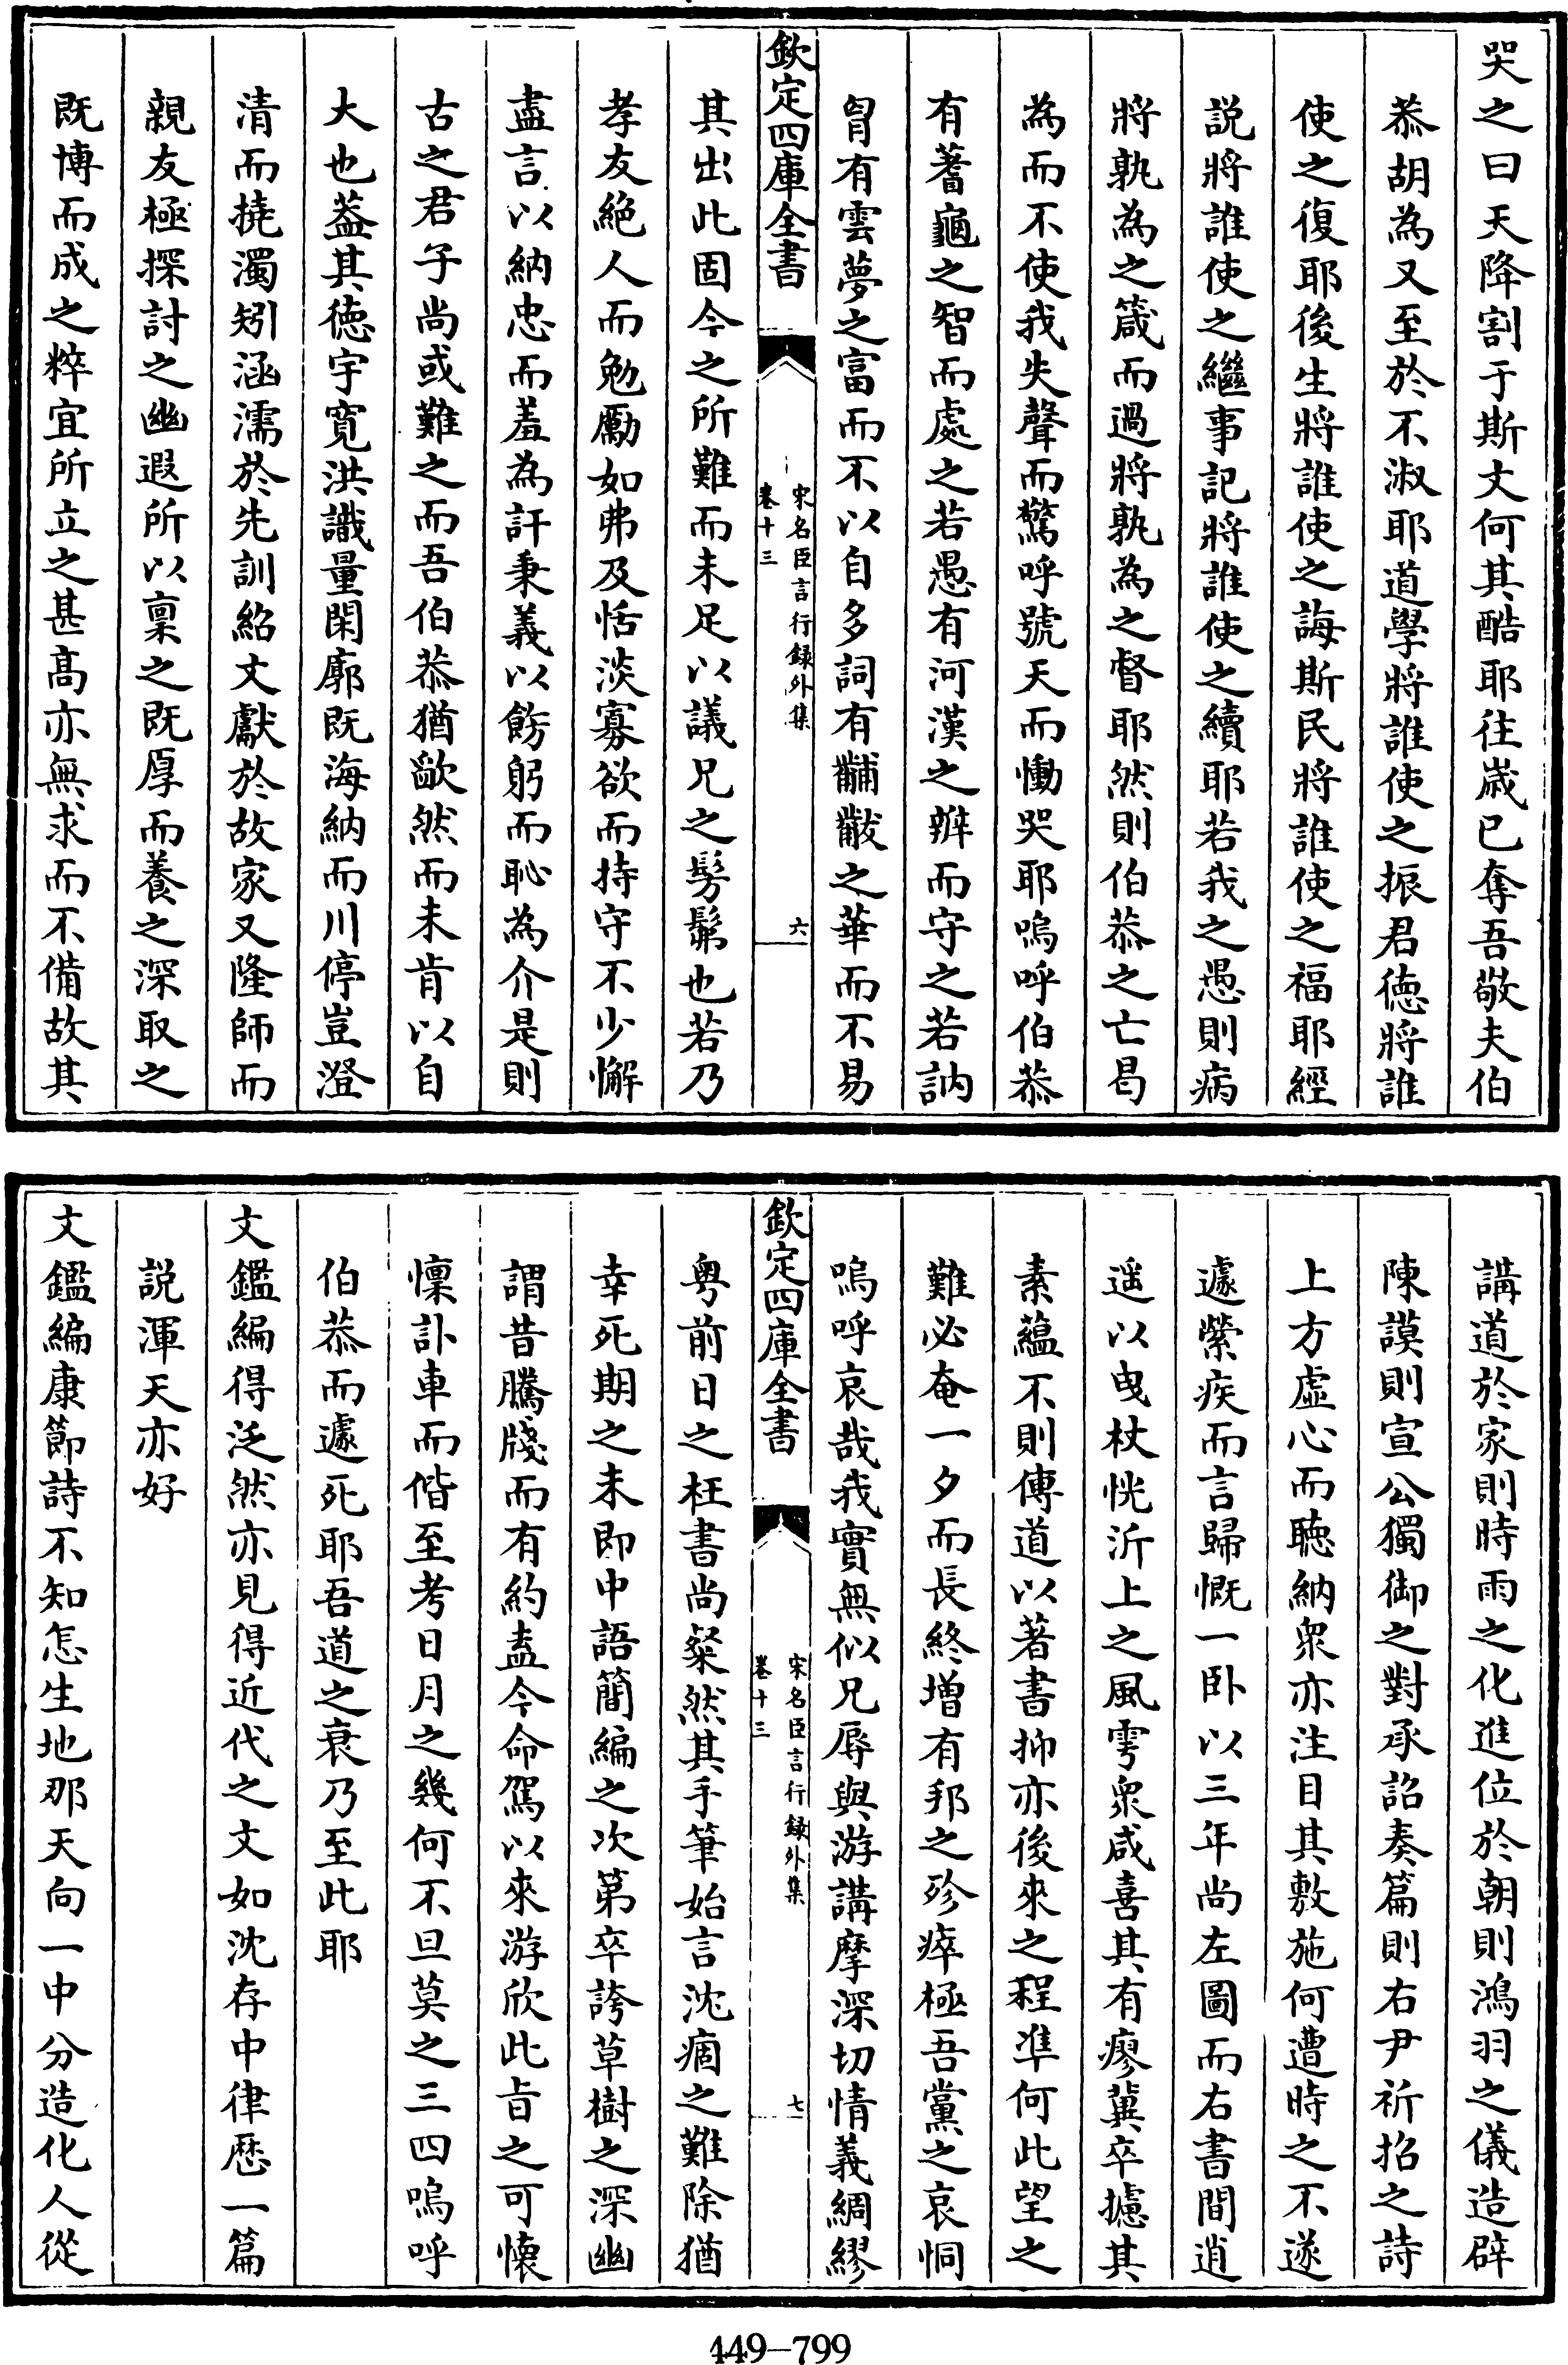 哭之曰天降割于斯文何其酷耶往嵗已奪吾敬夫伯
恭胡為又至於不淑耶道學將誰使之振君徳將誰
使之復耶後生將誰使之誨斯民將誰使之福耶經
説將誰使之繼事記將誰使之續耶若我之愚則病
將孰為之箴而過將孰為之督耶然則伯恭之亡曷
為而不使我失聲而驚呼號天而慟哭耶嗚呼伯恭
有蓍龜之智而處之若愚有河漢之辯而守之若訥
胷有雲夢之富而不以自多詞有黼黻之華而不易
欽定四庫全書
宋名臣言行録外集
卷十三
六
其出此固今之所難而未足以議兄之髣髴也若乃
孝友絶人而勉勵如弗及恬淡寡欲而持守不少懈
盡言以納忠而羞為訐秉義以飭躬而恥為介是則
古之君子尚或難之而吾伯恭猶歉然而未肯以自
大也葢其徳宇寛洪識量閎廓既海納而川停豈澄
清而撓濁矧涵濡於先訓紹文獻於故家又隆師而
親友極探討之幽遐所以禀之既厚而養之深取之
既博而成之粹宜所立之甚髙亦無求而不備故其
講道於家則時雨之化進位於朝則鴻羽之儀造辟
陳謨則宣公獨御之對承詔奏篇則右尹祈招之詩
上方虛心而聽納衆亦注目其敷施何遭時之不遂
遽縈疾而言歸慨一卧以三年尚左圖而右書間逍
遥以曳杖恍沂上之風雩衆咸喜其有瘳冀卒攄其
素蘊不則傳道以著書抑亦後來之程準何此望之
難必奄一夕而長終增有邦之殄瘁極吾黨之哀恫
嗚呼哀哉我實無似兄辱與游講摩深切情義綢繆
欽定四庫全書
宋名臣言行録外集
卷十三
七
粤前日之枉書尚粲然其手筆始言沈痼之難除猶
幸死期之未即中語簡編之次第卒誇草樹之深幽
謂昔騰牋而有約盍今命駕以來游欣此㫖之可懐
懍訃車而偕至考日月之幾何不旦莫之三四嗚呼
伯恭而遽死耶吾道之衰乃至此耶
文鑑編得泛然亦見得近代之文如沈存中律厯一篇
説渾天亦好
文鑑編康節詩不知怎生地那天向一中分造化人從
449—799